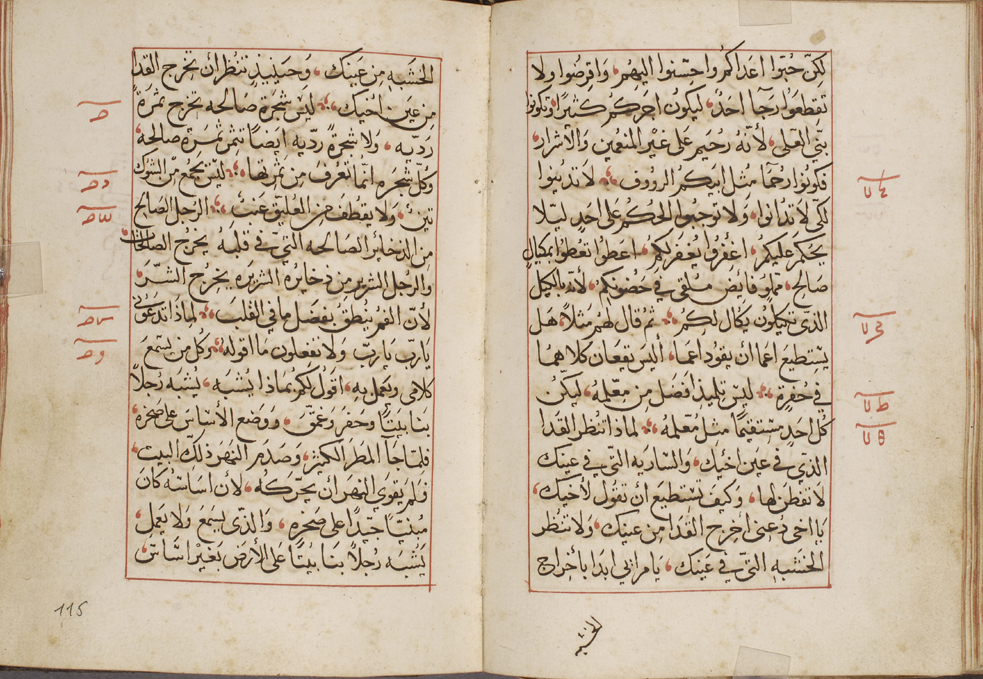 لكن حبوا اعداكم واحسنوا اليهم، واقرضوا ولا
تقطعوا رجا احد، ليكون اجركم كثيرا، وتكونوا
بني العلي، لأنه رحيم على غير المنعمين والأشرار
فكونوا رحما مثل ابيكم الرووف، لا تدينوا
لكي لا تدانوا، ولا توجبوا الحكم على احد ليلا
يحكم عليكم، اغفروا يغفر لكم، اعطوا تعطوا بمكيال
صالح، مملو فايض ملقى في حضونكم، لأنه بالكيل
الذي تكيلون يكال لكم، ثم قال لهم مثلا، هل
يستطيع اعما ان يقود اعما، أليس يقعان كلاهما
في حفره، ليس تلميذ افضل من معلمه، ليكن
كل احد مستقيما مثل معلمه، لماذا تنظر القذا
الذي في عين اخيك، والساريه التي في عينك
لا تفطن لها، وكيف تستطيع أن تقول لأخيك،
يا اخي دعنى اخرج القذا من عينك، ولا تنظر
الخشبه التي في عينك، يا مرايي ابدا بأخراج
الخشبه
الخشبه من عينك، وحينيذ تنظر ان تخرج القذا
من عين اخيك، ليس شجره صالحه تخرج ثمرة
رديه، ولا شجرة رديه ايضا تثمر ثمرة صالحه،
وكل شجره انما تعرف من ثمرتها، ليس يجمع من الشوك
تين، ولا يقطف من العليق عنب، الرجل الصالح
من الدخاير الصالحه التي في قلبه يخرج الصالحات
والرجل الشرير من دخايره الشريره يخرج الشر
لأن الفم ينطق بفضل ما في القلب، لماذا تدعوني
يا رب يا رب ولا تفعلون ما اقوله، وكل من يسمع
كلامى ويعمل به، اقول لكم بماذا يشبه، يشبه رجلا
بنا بيتا وحفر وعمق، ووضع الأساس على صخره
فلما جا المطر الكثير، وصدم النهر ذلك البيت،
فلم يقوى النهر أن يحركه، لأن اساسه كان
مبنيا جيدا على صخره، والذي يسمع ولا يعمل،
يشبه رجلا بنا بيتا على الأرض بغير اساس،
115